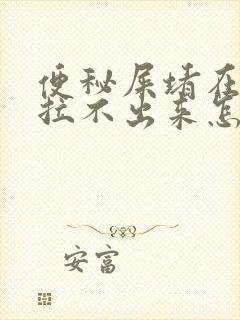 便秘屎堵在
拉不出来怎
安富